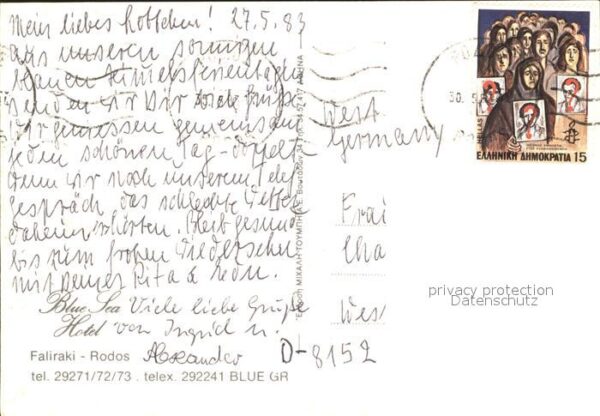 Mein liebes Lottchen! 27.5.83
aus unseren sonnigen
blauen Griechenferientagen
senden wir Dir viele Grüße
Wir geniessen gemeinsam
jeden schönen Tag - doppelt
wenn wir nach unserem Telef.
gespräch das schlechte Wetter
daheim hörten. Bleib gesund
bis zum frohen Wiedersehn
mit Deiner Rita & Leon.
Blue Sea Viele liebe Grüße
Hotel von Ingrid u.
Faliraki - Rodos Alexander
tel. 29271/72/73 . telex. 292241 BLUE GR
West
Germany
Frai
Cha
Wes
D-8152
30.5
HELLAS
ΕΛΛΗΝΙΚΗ ΔΗΜΟΚΡΑΤΙΑ 15
privacy protection
Datenschutz